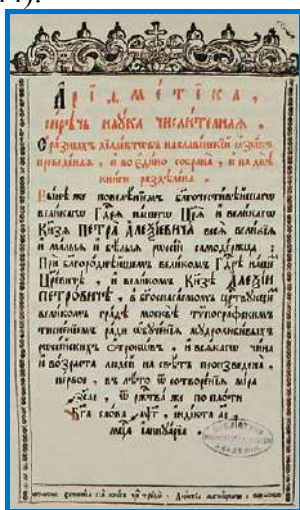 Аріѳметіка,
сирѣчь наука числителная.
С разныхъ діалектовъ на славенскій языкъ
преведеная, и во едино собрана, и на двѣ
книги раздѣлена.
Нынѣ же повелѣніемъ благочестивѣйшагѡ
великагѡ Гдⷭ҇рѧ нашегѡ Цр҃ѧ и великагѡ
Кнѧзѧ ПЕТРА АЛЕѮІЕВИЧА всеѧ великіѧ
и малыѧ и бѣлыѧ рѡссіи самодержца:
При благороднѣйшемъ великомъ Гдⷭ҇рѣ нашемъ
Цр҃евичѣ, и великомъ Кнѧзѣ АЛЕѮІИ
ПЕТРОВИЧѢ, в бг҃оспасаемомъ царствующемъ
великомъ градѣ москвѣ тѵпографскимъ
тисненіемъ ради ѡбученїѧ мудролюбивыхъ
рѡссійскихъ ѻтрокѡвъ, и всѧкагѡ чина
и возраста людей на свѣтъ произведена,
первое, въ лѣто ѿ сотворенїѧ мїра
҂зс҃аі, ѿ рж҇тва же по плоти
Бг҃а слова ҂аѱг҃, індікта а҃і
мц҇а іаннуаріа.